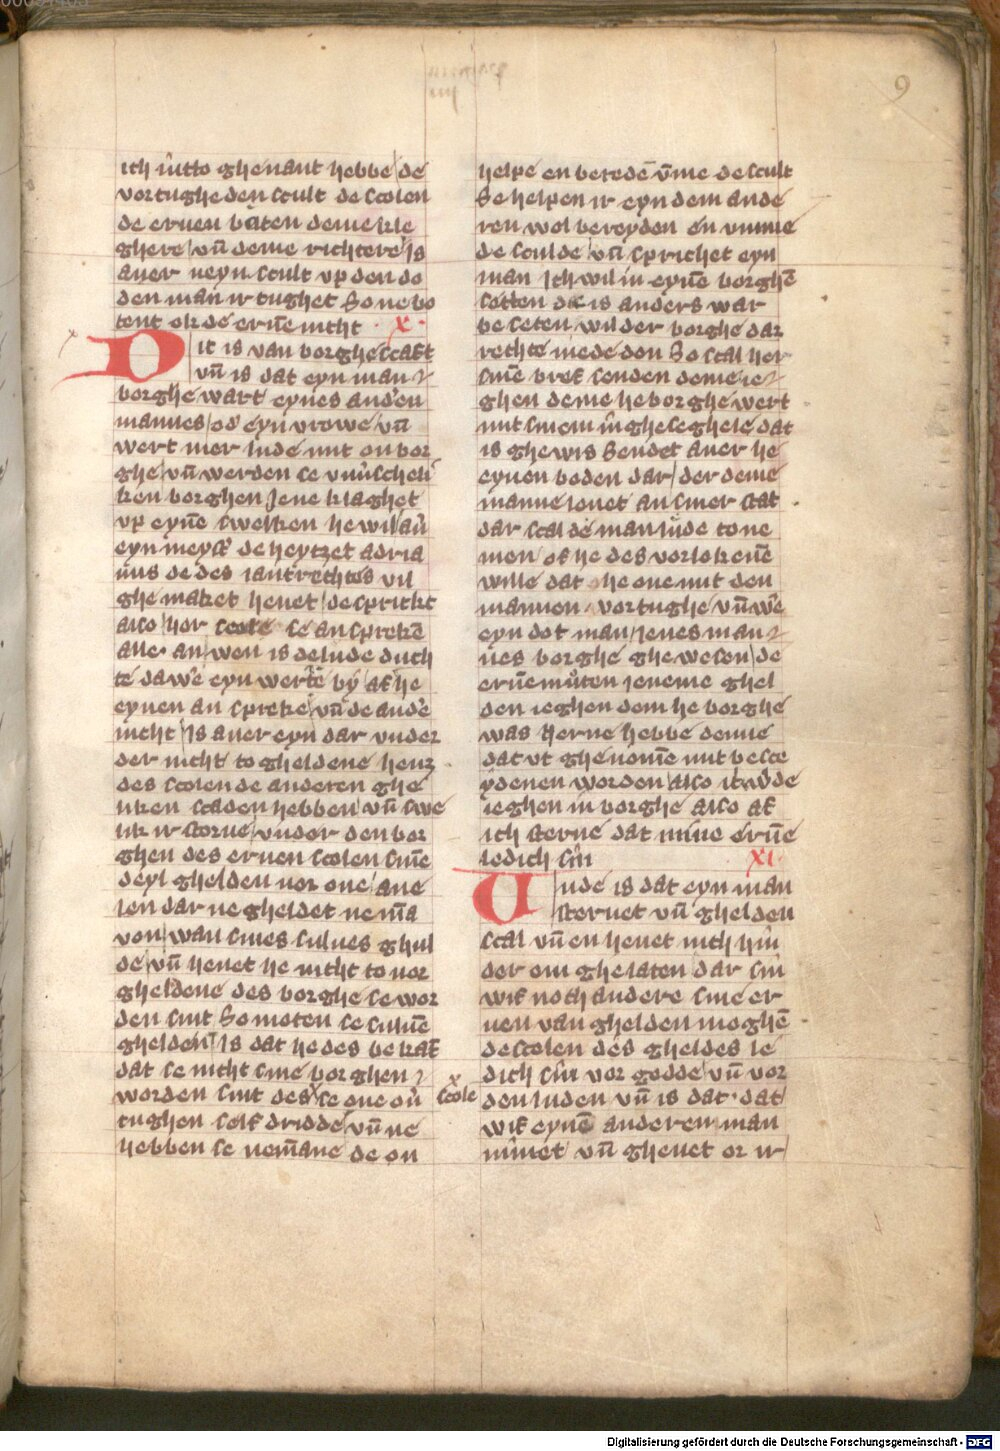 9
ich nũtto ghenant hebbe de
vortughe den scult de scolen
de eruen bůten deme kle
ghere vñ deme richtere Is
auer neyn scult vp den do
den man ir tughet So ne bo
tent ok de eruẽ nicht x.
Dit is van borghescakt
vñ is dat eyn man
borghe wart eynes anďen
mannes oď eyn vrowe vñ
wert mer lude mit on bor
ghe vñ werden se vnůscheli
ken borghen Jene klaghet
vp eynẽ swelken he wil aů
eyn meyst' de heytzet adria
nus de des lantrechtes vil
ghemaket heuet de sprickt
also hor scole se anspreken
alle an wen is de lude duch
te da we eyn werte by ak he
eynen an spreke vñ de anďe
nicht Is auer eyn dar vnder
der nicht to gheldene henz
des scolen de anderen ghe
nken scaden hebben vñ swe
lik ir storue vnder den bor
ghen des eruen scolen sinẽ
deyl ghelden vor one ane
ien dar ne gheldet nem̃a
von wan sines sulues ghul
de vñ heuet he nicht to vor
gheldene des borghe se wor
den sint So moten se suluẽ
ghelden Is dat he des bekať
dat se nicht sine borghen
worden sint des se one oů
scole
tughen selk dridde vñ ne
hebben se nem̃ane de on
helpe en beredẽ v̄me de scult
Se helpen ir eyn dem ande
ren wol bereyden en vmme
de sculde vñ sprichet eyn
man Ich wil in eynẽ borghẽ
setten de is anders war
be seten wil der borghe dar
rechte mede don So scal her
sinẽ bref senden deme ie
ghen deme he borghe wert
mit sinem inghe seghele dat
is ghewis Sendet auer he
eynen boden dar der deme
manne louet an siner stat
dar scal de man lude to ne
men of he des vorlokenẽ
wille dat he one mit den
mannen vortughe vñ wẽ
eyn dot man ienes man
nes borghe ghe wesen de
eruẽ můten ieneme ghel
den ieghen dem he borghe
was herne hebbe denne
dat vt ghenomẽ mit besce
ydenen worden also ik wďde
ieghen in borghe also ak
ich sterue dat mine eruẽ
ledich sin xi
Unde is dat eyn man
steruet vñ ghelden
scal vñ en heuet nich hin
der om ghelaten dar sin
wif noch andere sine er
uen van ghelden moghẽ
de scolen des gheldes le
dich sin vor godde vñ vor
den luden vñ is dat dat
wif eynẽ anderen man
nimet vñ gheuet or ir
Digitalisierung gefördert durch die Deutsche Forschungsgemeinschaft - DFG